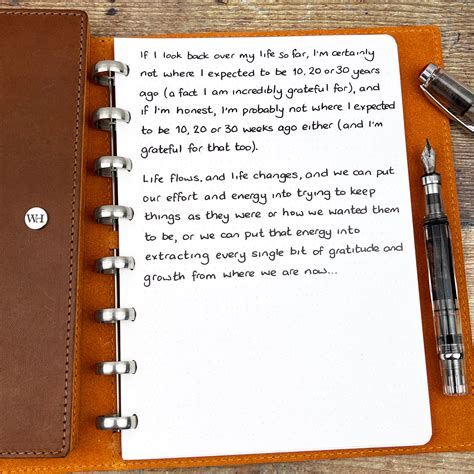 If I look back over my life so far, I'm certainly
not where I expected to be 10, 20 or 30 years
ago (a fact I am incredibly grateful for), and
if I'm honest, I'm probably not where I expected
to be 10, 20 or 30 weeks ago either (and I'm
grateful for that too).
Life flows, and life changes, and we can put
our effort and energy into trying to keep
things as they were or how we wanted them
to be, or we can put that energy into
extracting every single bit of gratitude and
growth from where we are now...
WH